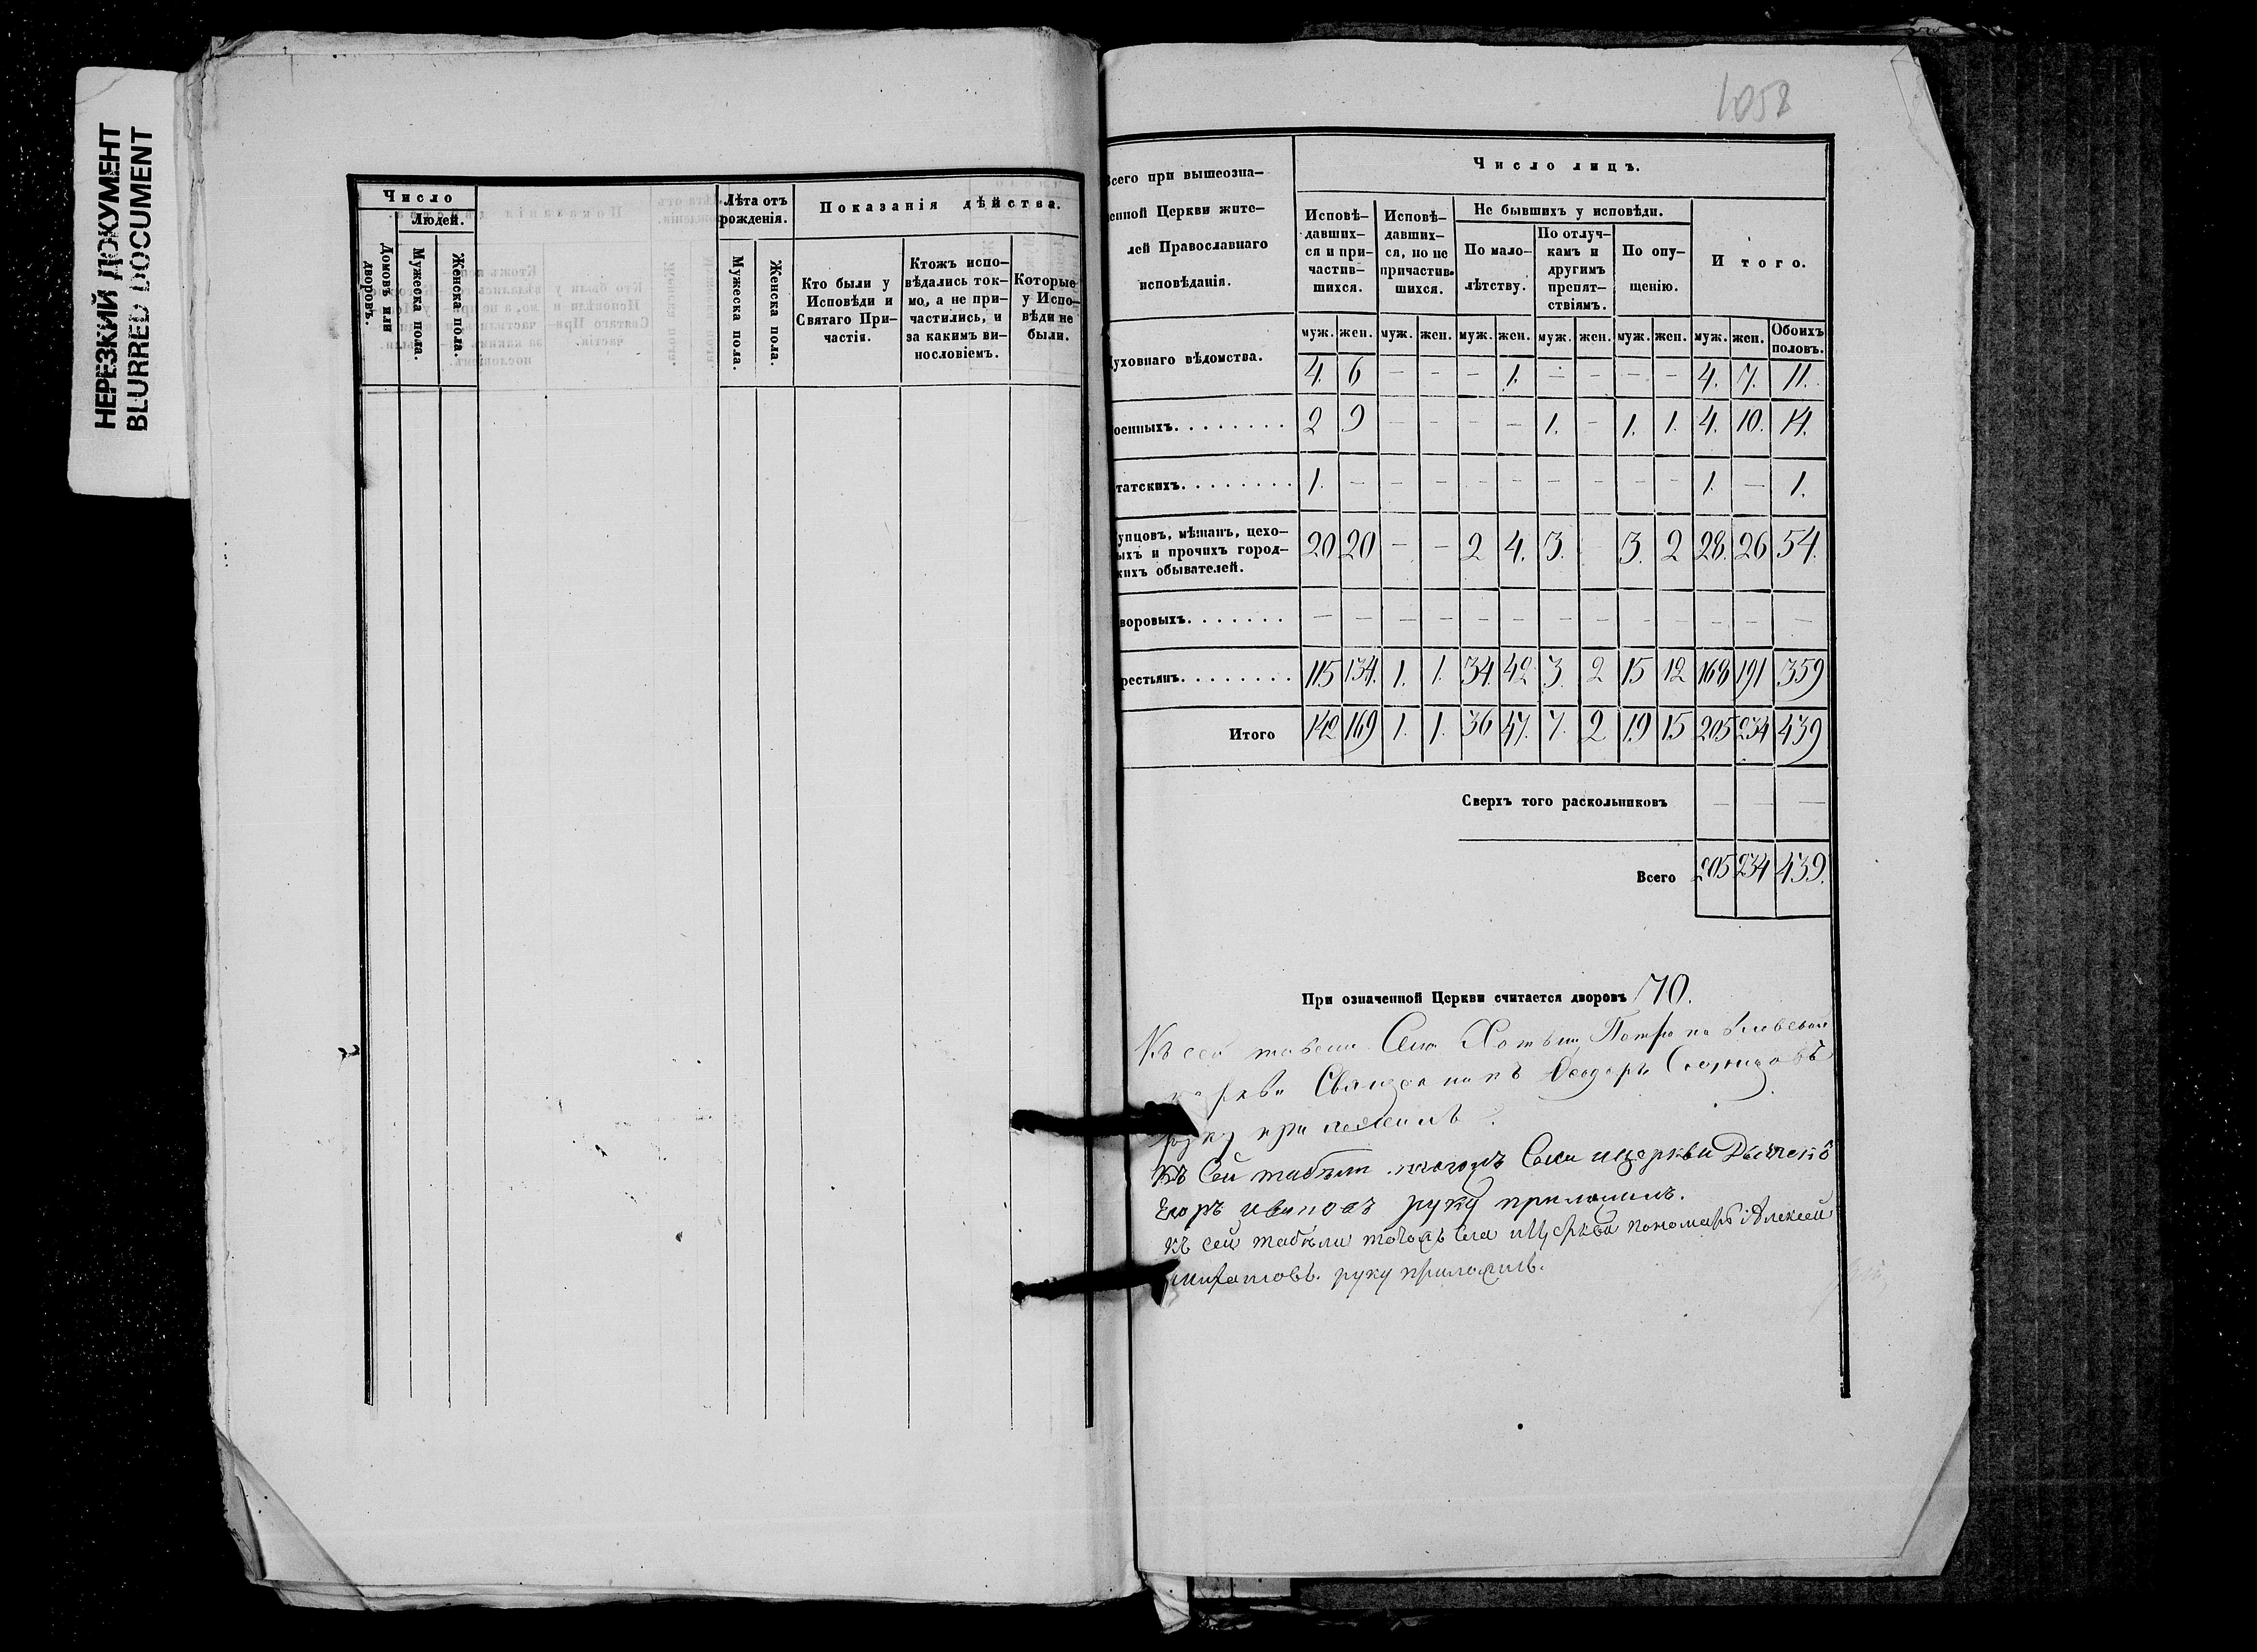 НЕРЕЗКИЙ ДОКУМЕНТ
BLURRED DOCUMENT
Число
Людей.
Домовъ или дворовъ.
Мужеска пола.
Женска пола.
Лѣта отъ
рожденія.
Мужеска пола.
Женска пола.
Показанія дѣйства.
Кто были у
Исповѣди и
Святаго При-
частія.
Ктожъ испо-
вѣдались ток-
мо, а не при-
частились, и
за какимъ ви-
нословіемъ.
Которые
у Испо-
вѣди не
были.
1058
Всего при вышеозна-
ченной Церкви жите-
лей Православнаго
исповѣданія.
Число лицъ.
Исповѣ-
давших-
ся и при-
частив-
шихся.
Исповѣ-
давших-
ся, но не
причастив-
шихся.
Не бывшихъ у исповѣди.
По мало-
лѣтству.
По отлуч-
камъ и
другимъ
препят-
ствіямъ.
По опу-
щенію.
Итого.
муж. жен. муж. жен. муж. жен. муж. жен. муж. жен. муж. жен. Обоихъ половъ.
уховнаго вѣдомства. 4. 6 — — — 1. — — — — 4. 7. 11.
оенныхъ. 2 9 — — — — 1. — 1. 1. 4. 10. 14.
татскихъ. 1. — — — — — — — — — 1. — 1.
упцовъ, мѣщанъ, цехо-
ыхъ и прочихъ город-
кихъ обывателей. 20 20 — — 2 4. 3. 3. 2 28. 26 54.
воровыхъ. — — — — — — — — — — — — —
рестьянъ. 115 134. 1. 1. 34. 42 3. 2 15 12 168 191 359
Итого 142 169 1. 1. 36 47. 7. 2 19 15 205 234 439
Сверхъ того раскольниковъ — — —
Всего 205 234 439.
При означенной Церкви считается дворовъ 70.
Къ сей табели Села Петропавловской
церкви Священникъ Ѳеодоръ
руку приложилъ.
Къ Сей табели Села ицеркви Дьячекъ
Егоръ ивановъ руку приложилъ.
къ сей табели тогожъ села ицеркви пономарь Алексей
руку приложилъ.